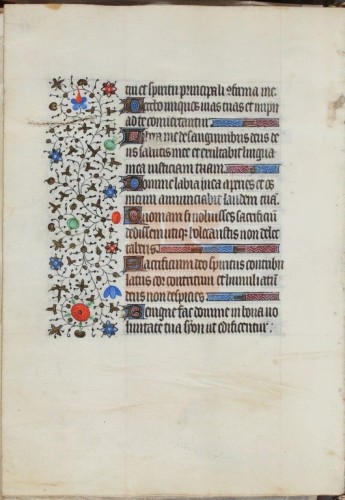 tui et spiritu principali 9firma me
Docebo iniquos vias tuas et impii
ad te convertentur
Libera me de sanguinibus deus de
us salutis mee et exultabit lingua
mea iusticiam tuam
Domine labia mea aperies et os
meum annunciabit laudem tuā
Quoniam si voluisses sacrificiū
dedissem utiq; holocaustis non delec
taberis
Sacrificium deo spiritus contribu
latus cor contritum et humiliatū
deus non despicies
Benigne fac domine in bona vo
luntate tua syon ut edificentur